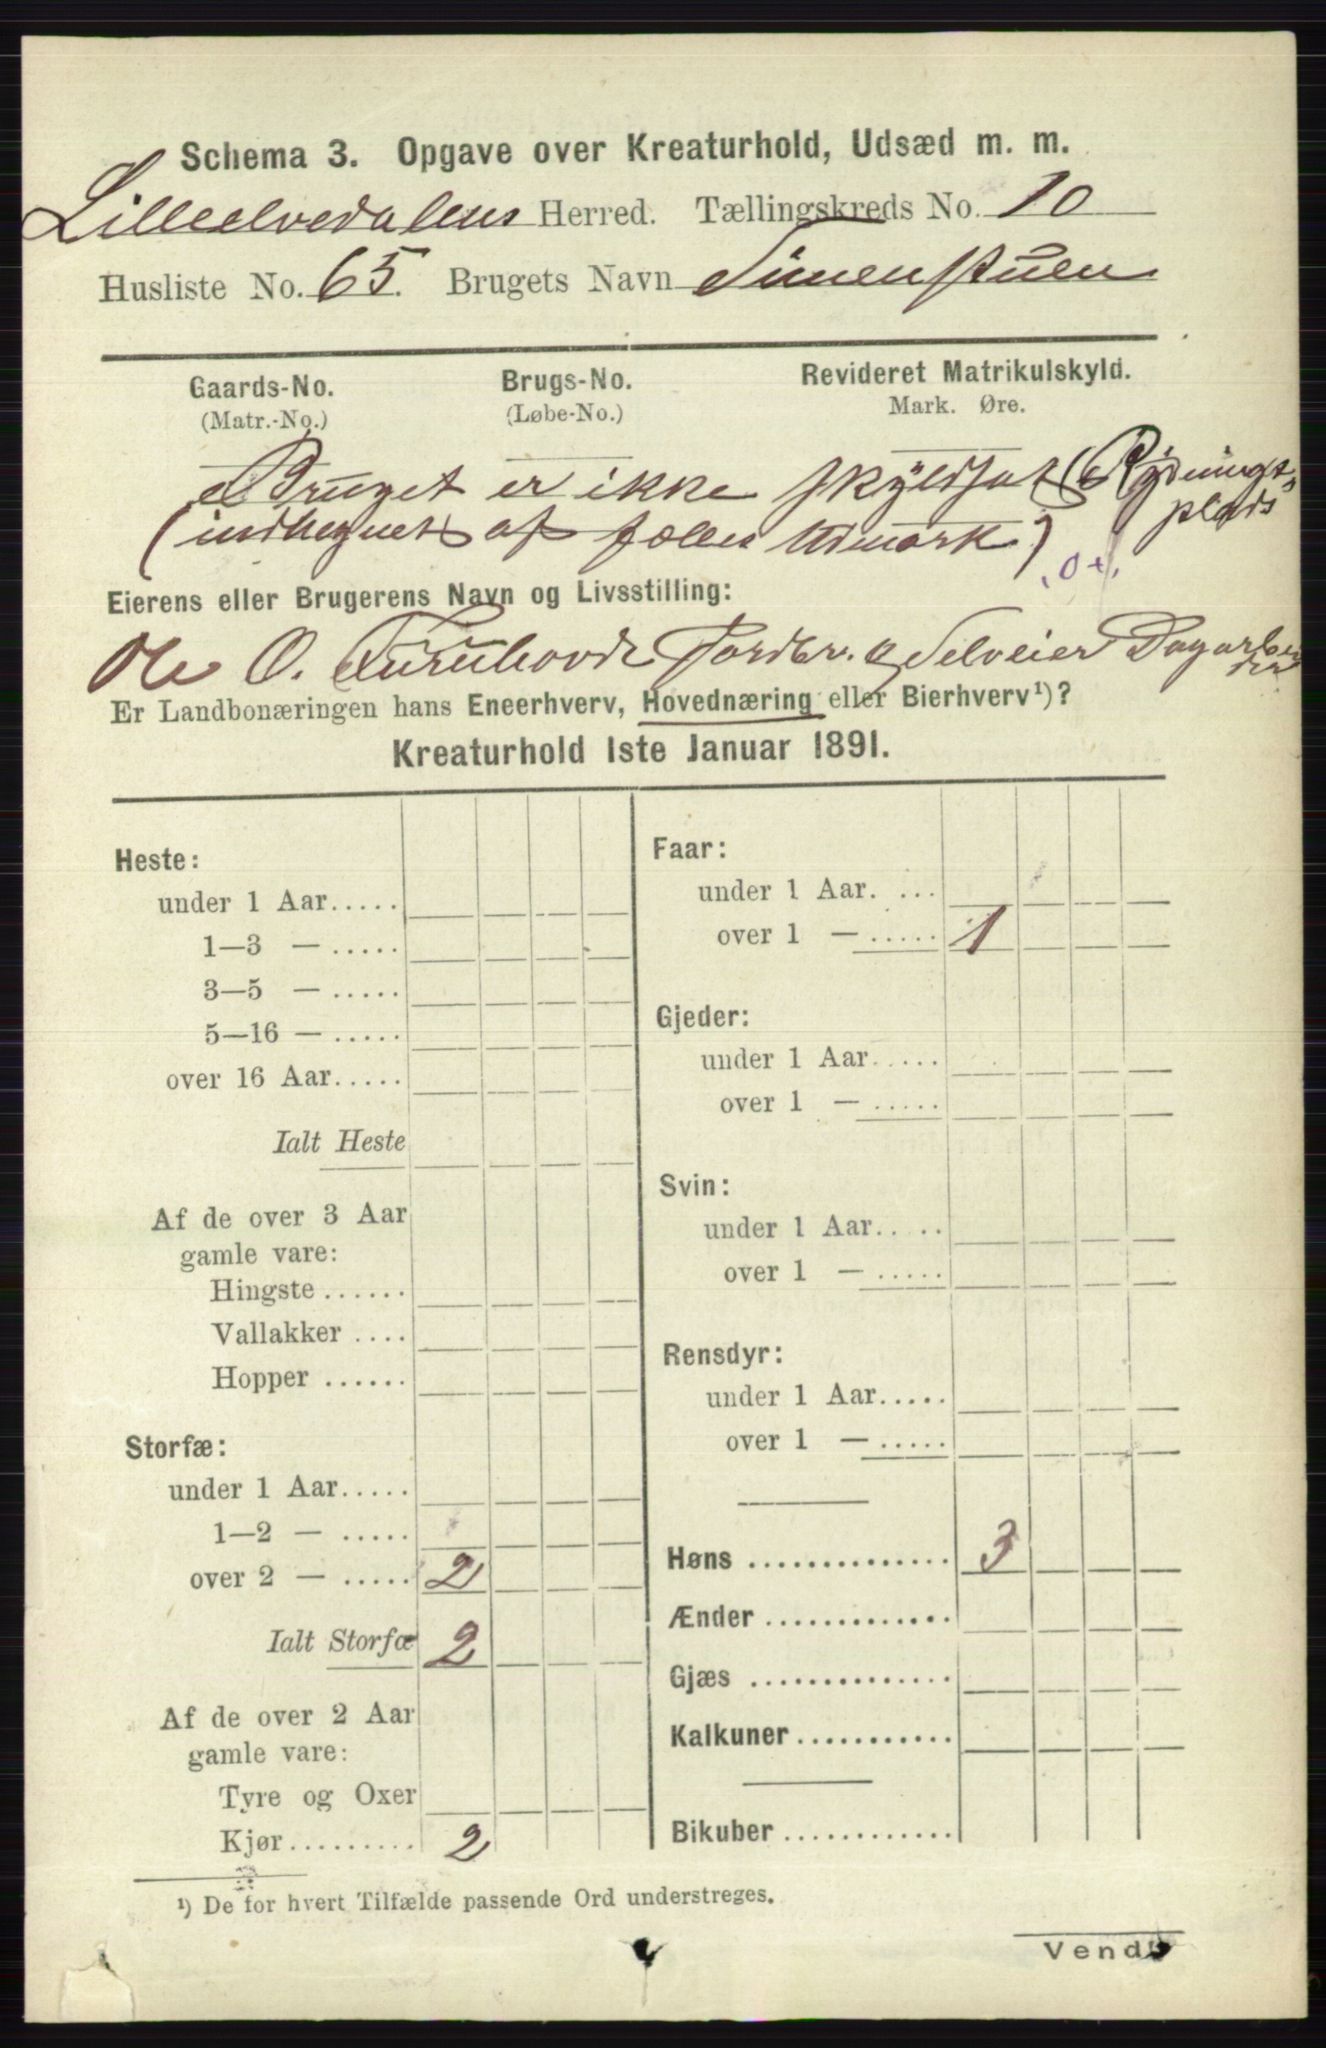 Schema 3. Opgave over Kreaturhold, Udsæd m. m.
Lilleelvedalens Herred. Tællingskreds No. 10
Husliste No. 65. Brugets Navn Simenstuen
Gaards-No. Brugs-No. Revideret Matrikulskyld.
(Matr.-No.) (Løbe-No.) Mark. Øre.
Bruget er ikke skyldsat (Rydnings-
plads
(indhegnet af fælles Udmark)
Eierens eller Brugerens Navn og Livsstilling:
Ole O. Furuhovde Jordbr. Selveier Dagarbei
der
Er Landbonæringen hans Eneerhverv, Hovednæring eller Bierhverv¹)?
Kreaturhold 1ste Januar 1891.
Heste:
under 1 Aar.....
1—3 — .....
3—5 — .....
5—16 — .....
over 16 Aar.....
Ialt Heste
Af de over 3 Aar
gamle vare:
Hingste ......
Vallakker ....
Hopper ......
Storfæ:
under 1 Aar.....
1—2 — .....
over 2 — ..... 2
Ialt Storfæ 2
Af de over 2 Aar
gamle vare:
Tyre og Oxer
Kjør......... 2
Faar:
under 1 Aar. ...
over 1 — ..... 1
Gjeder:
under 1 Aar.....
over 1 — .....
Svin:
under 1 Aar.....
over 1 — .....
Rensdyr:
under 1 Aar.....
over 1 — .....
Høns .............. 3
Ænder .............
Gjæs ..............
Kalkuner ...........
Bikuber ............
¹) De for hvert Tilfælde passende Ord understreges.
Vend!